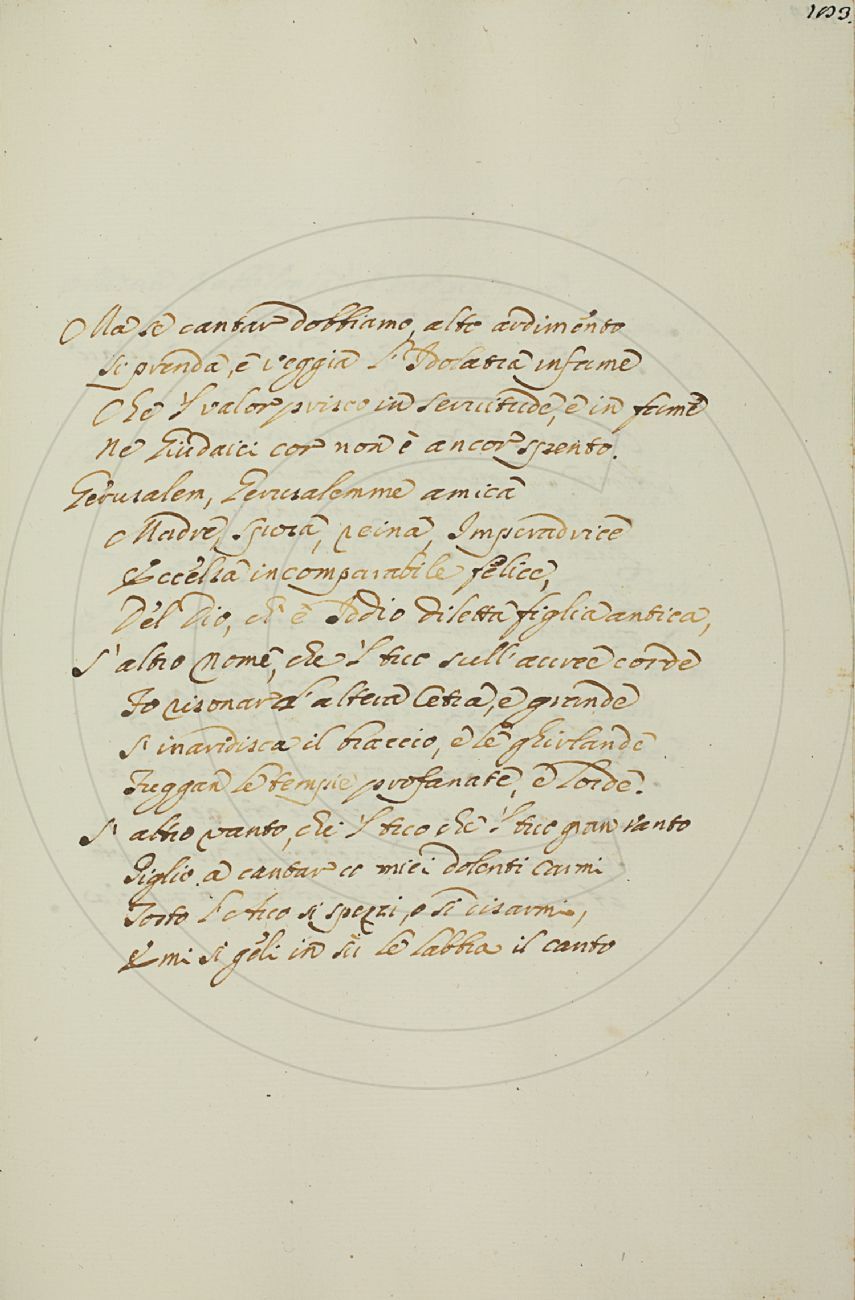 193.
Ma se cantar dobbiamo, alto ardimento
Si prenda, e veggia l'Idolatra infame
Che 'l valor prisco in servitude, e in fame
Ne Giudaici cor non è ancor spento.
Gerusalem, Gerusalemme amica
Madre, sposa, reina, Imperadrice
Eccelsa incomparabile felice,
Del Dio, ch'è Iddio diletta figlia antica,
S'altro nome, che 'l tuo sull'auree corde
Fo risonar l'altera Cetra, e grande
S'inaridisca il braccio, e le ghirlande
Fuggan le tempie profanate, e lorde.
S'altro vanto, che 'l tuo che 'l tuo gran vanto
Piglio a cantar co miei dolenti carmi
Tosto l'arco si spezzi, o si disarmi,
E mi si geli in su le labbra il canto